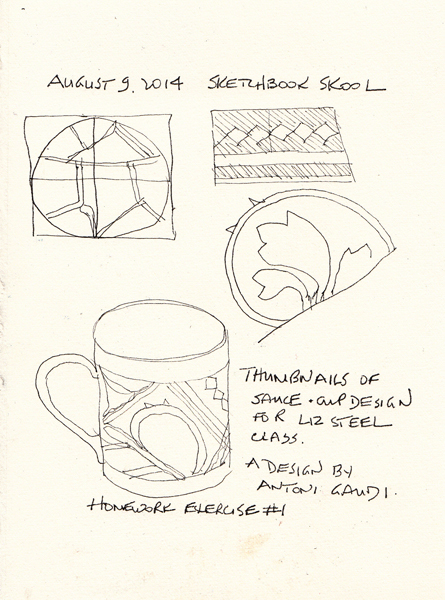 AUGUST 9. 2014 SKETCHBOOK SKOOL
THUMBNAILS OF
SAUCE + CUP DESIGN
FOR LIZ STEEL
CLASS.
A DESIGN BY
ANTONI GAUDI.
HOMEWORK EXERCISE #1